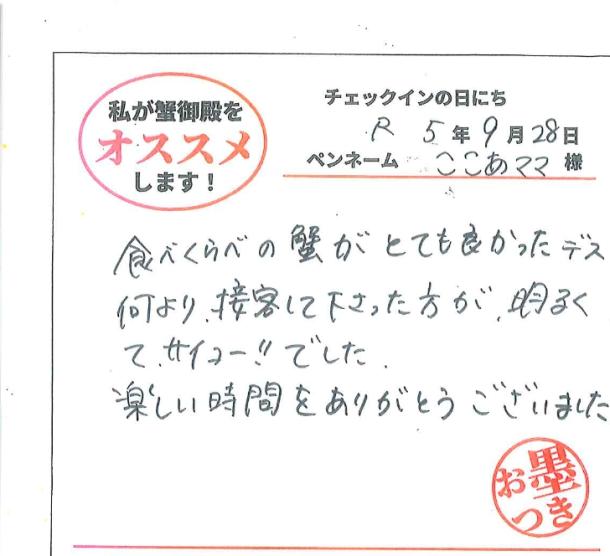 私が蟹御殿を
オススメ
します!
チェックインの日にち
R 5年9月28日
ペンネーム ここあママ 様
食べくらべの蟹がとても良かったデス
何より、接客して下さった方が、明るく
て、サイコー!!でした。
楽しい時間をありがとうございました
お墨つき